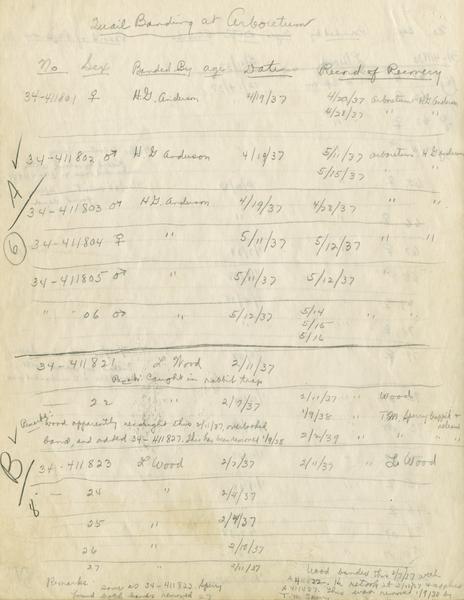 Quail Banding at Arboretum
No Sex Banded By age Date Record of Recovery
34-411801 ♀ H.G. Anderson 4/19/37 4/20/37 arboretum H.G. Anderson
4/28/37 " "
34-411802 ♂ H G Anderson 4/19/37 5/11/37 arboretum H G Anderson
5/15/37 " "
A
34-411803 ♂ H.G. Anderson 4/19/37 4/28/37 " "
6
34-411804 ♀ " 5/11/37 5/12/37 " "
34-411805 ♂ " 5/11/37 5/12/37
" " 06 ♂ " 5/12/37 5/14 " "
5/15
5/16
34-411821 L Wood 2/11/37
Caught in rabbit trap
— 22 " 2/9/37 2/11/37 " Wood
1/9/38 " T.M. Sperry trapped &
released
Remarks: Wood apparently recaught this 2/11/37, overlooked
band, and added 34-411827. This has been removed 1/9/38
2/2/39 " " "
B
8
34-411823 L Wood 2/7/37 2/11/37 " L Wood
— 24 " 2/4/37
25 " 2/9/37
26 " 2/10/37
27 " 2/11/37
Remarks same as 34-411822. Sperry
found both bands removed 27
Wood banded this 2/9/37 with
A 411822. It return at 2/11/37 & applied
A 411827. This was removed 1/9/38 by
T.M. Sperry